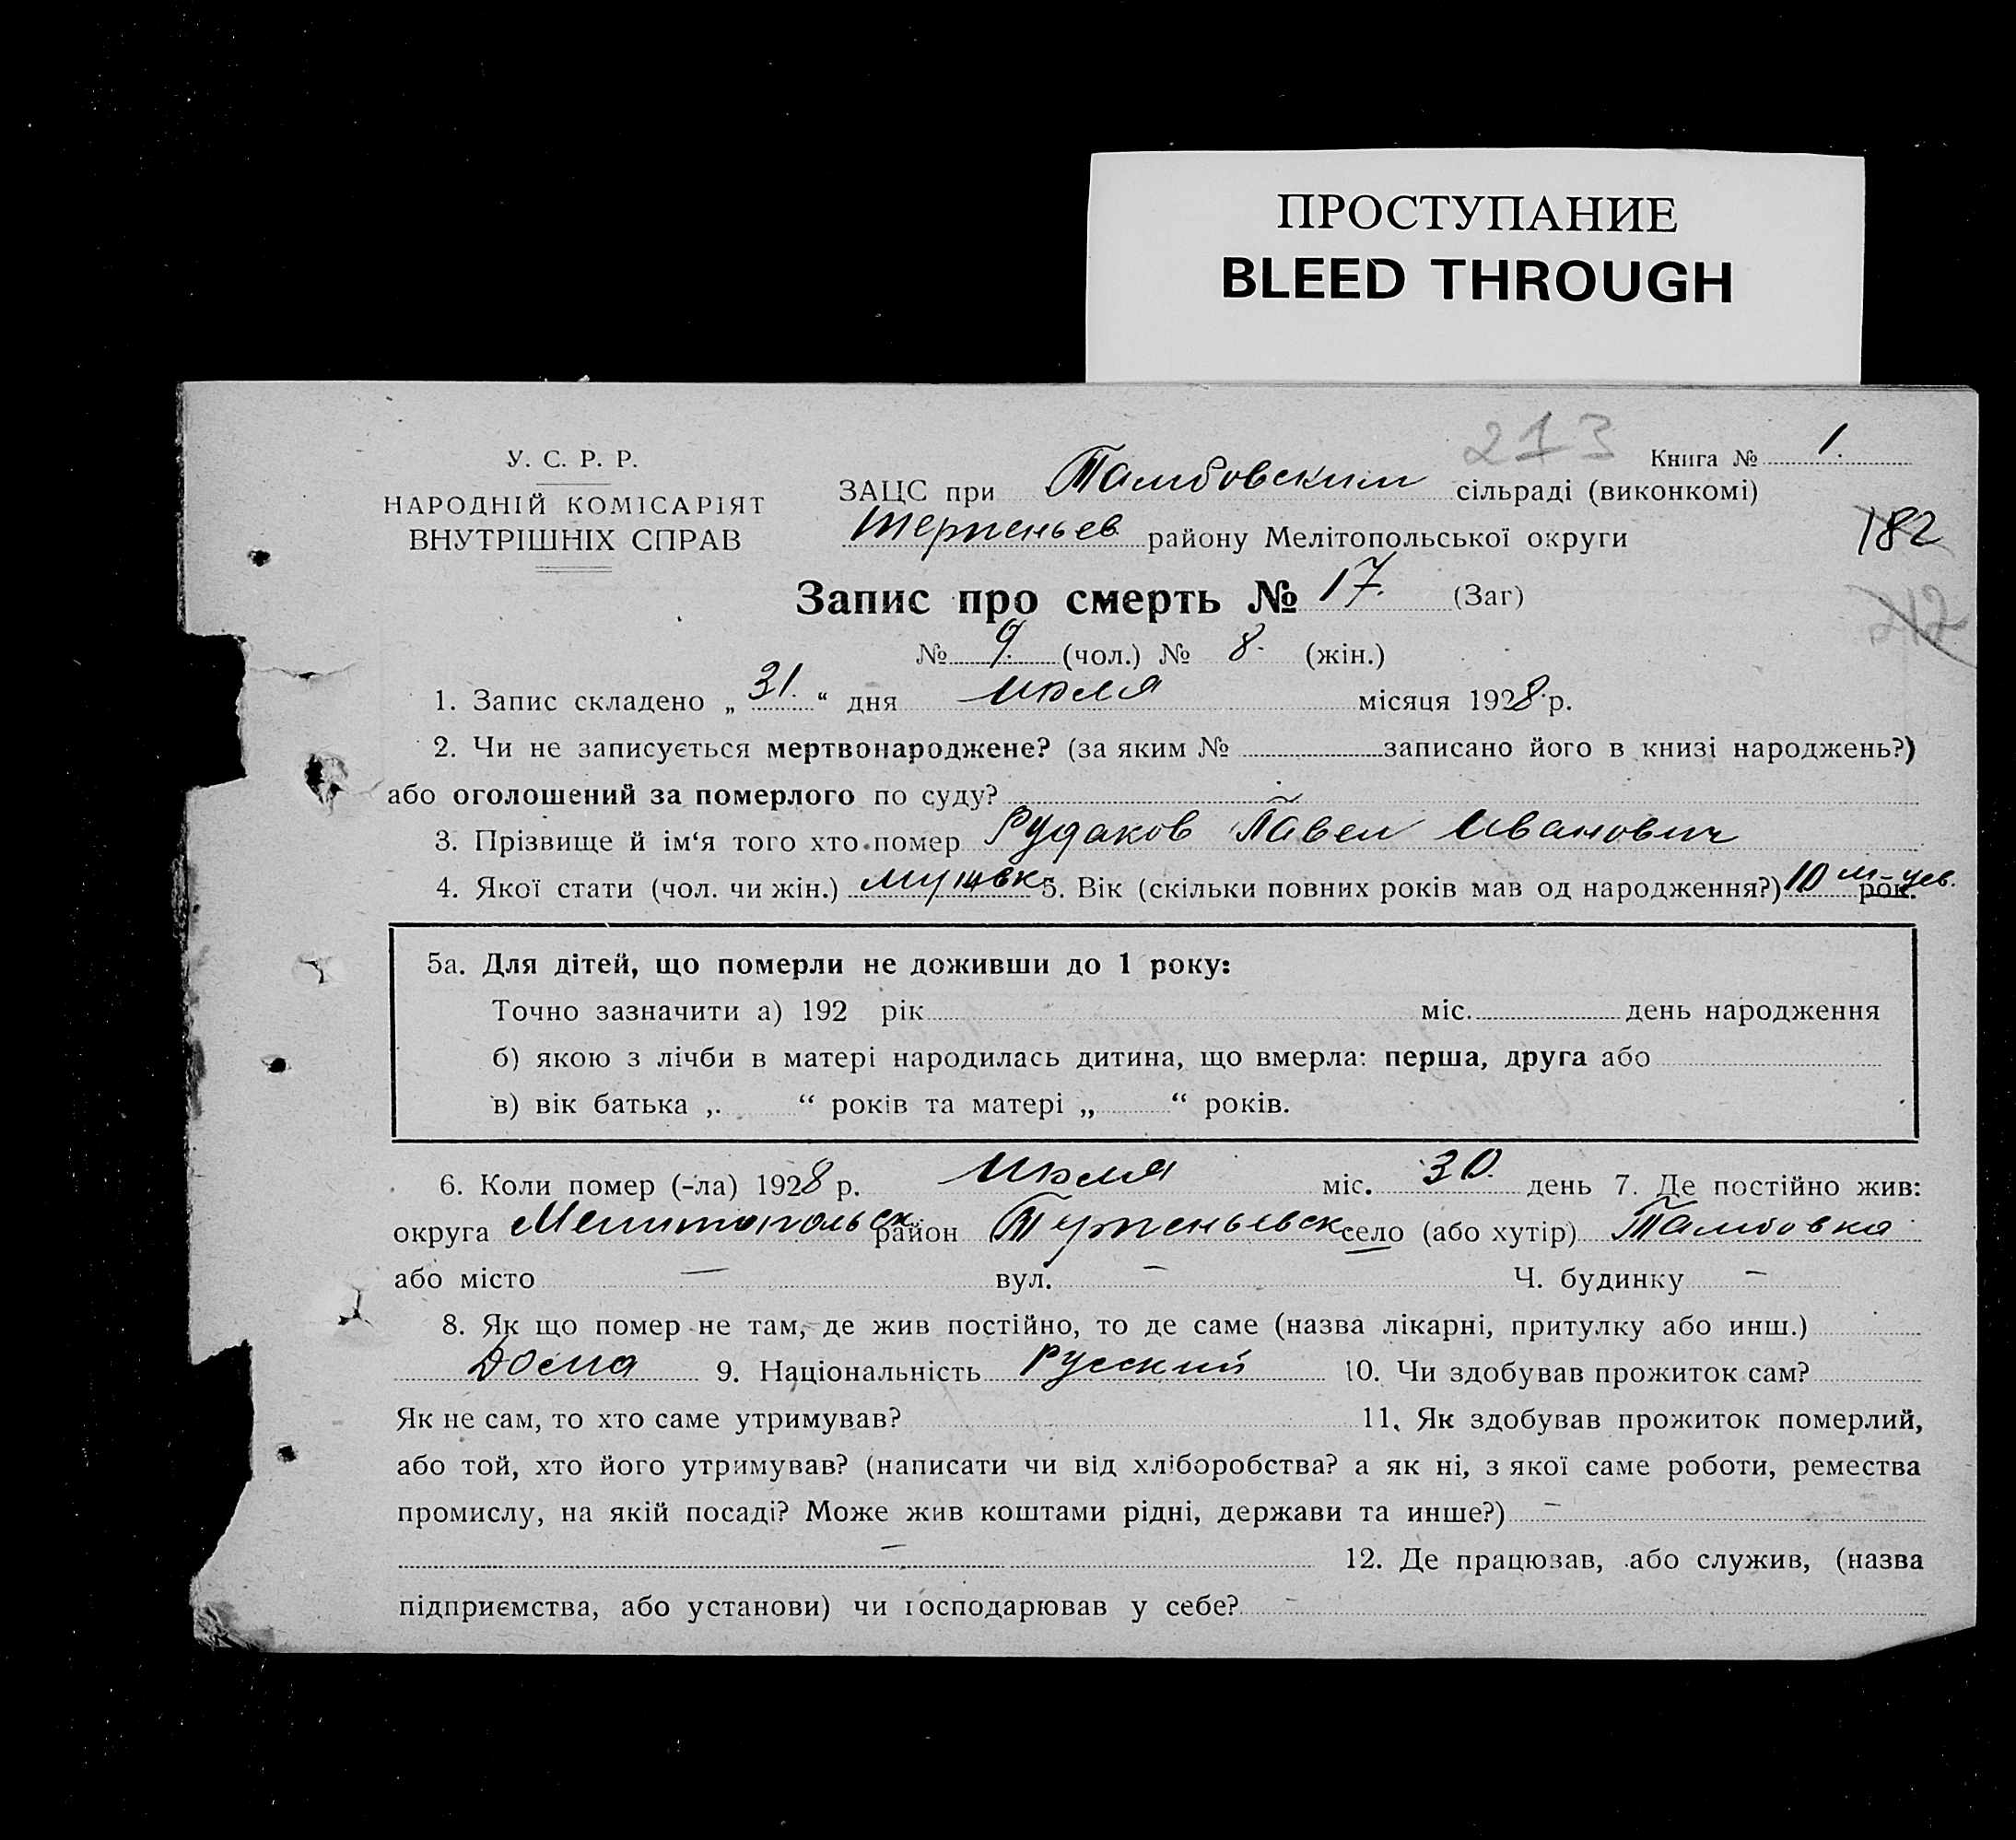 ПРОСТУПАНИЕ
BLEED THROUGH
213
Книга № 1.
У. С. Р. Р.
НАРОДНІЙ КОМІСАРІЯТ
ВНУТРІШНІХ СПРАВ
ЗАЦС при Тамбовским сільраді (виконкомі)
Терпеньев району Мелітопольської округи
182
212
Запис про смерть № 17. (Заг)
№ 9. (чол.) № 8. (жін.)
1. Запис складено „ 31. “ дня июля місяця 1928 р.
2. Чи не записується мертвонароджене? (за яким № записано його в книзі народжень?)
або оголошений за померлого по суду?
3. Прізвище й ім‘я того хто помер Рудаков Павел Иванович
4. Якої стати (чол. чи жін.) мужск 5. Вік (скільки повних років мав од народження?) 10 м-цев. рок.
5а. Для дітей, що померли не доживши до 1 року:
Точно зазначити а) 192 рік міс. день народження
б) якою з лічби в матері народилась дитина, що вмерла: перша, друга або
в) вік батька „ “ років та матері „ “ років.
6. Коли помер (-ла) 1928 р. Июля міс. 30. день 7. Де постійно жив:
округа Мелитопольск. район Терпеньевск село (або хутір) Тамбовка
або місто — вул. — Ч. будинку —
8. Як що помер не там, де жив постійно, то де саме (назва лікарні, притулку або инш.)
Дома 9. Національність Русский 10. Чи здобував прожиток сам?
Як не сам, то хто саме утримував? 11. Як здобував прожиток померлий,
або той, хто його утримував? (написати чи від хліборобства? а як ні, з якої саме роботи, ремества
промислу, на якій посаді? Може жив коштами рідні, держави та инше?) —
— 12. Де працював, або служив, (назва
підприємства, або установи) чи господарював у себе? —